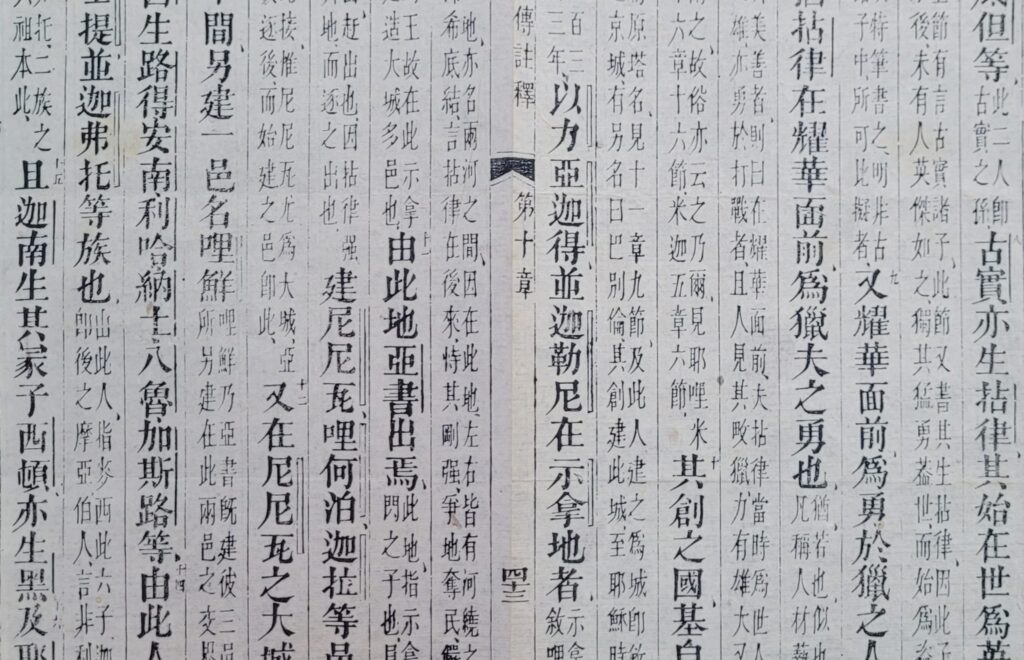 但等此二人卽
古實之孫
古實亦生拈律其始在世爲英
節有言古實諸子此節又書其生拈律因此子
後未有人英傑如之獨其猛勇葢世而始爲
特筆書之明非古
子中所可比擬者
九又耀華面前爲勇於獵之人
拈律在耀華面前爲獵夫之勇也
猶若也似也
凡稱人材藝
美善者則曰在耀華面前夫拈律當時爲世人
雄亦勇於打戰者且人見其畋獵力有雄大
之故俗亦云之乃爾見耶哩米
六章十六節米迦五章六節
十其創之國基自
原塔名見十一章九節及此人建之爲城卽所
京城有另名曰巴別倫其創建此城至耶穌時
百三
三年
以力亞迦得並迦勒尼在示拿地者
示拿
敘
傳註釋 第十章 四十三
地亦名兩河之間因在此地左右皆有河繞之
希底結言拈律在後來恃其剛强爭地奪民
王故在此示拿
造大城多邑也
十一由此地亞書出焉
此地指示拿
門之子也
赶出也因拈律强
地而逐之出也
建尼尼瓦哩何泊迦拉等邑
接惟尼尼瓦尤爲大城亞
逐後而始建之邑卽此
十二又在尼尼瓦之大城
間另建一邑名哩鮮
哩鮮乃亞書旣建彼三邑
所另建在此兩邑之交
生路得安南利哈納士八魯加斯路等十四由此人
提並迦弗托等族也
出此人指麥西此六子迦
卽後之摩亞伯人言非利
托二族之
祖本此
十五且迦南生其家子西頓亦生黑及耶